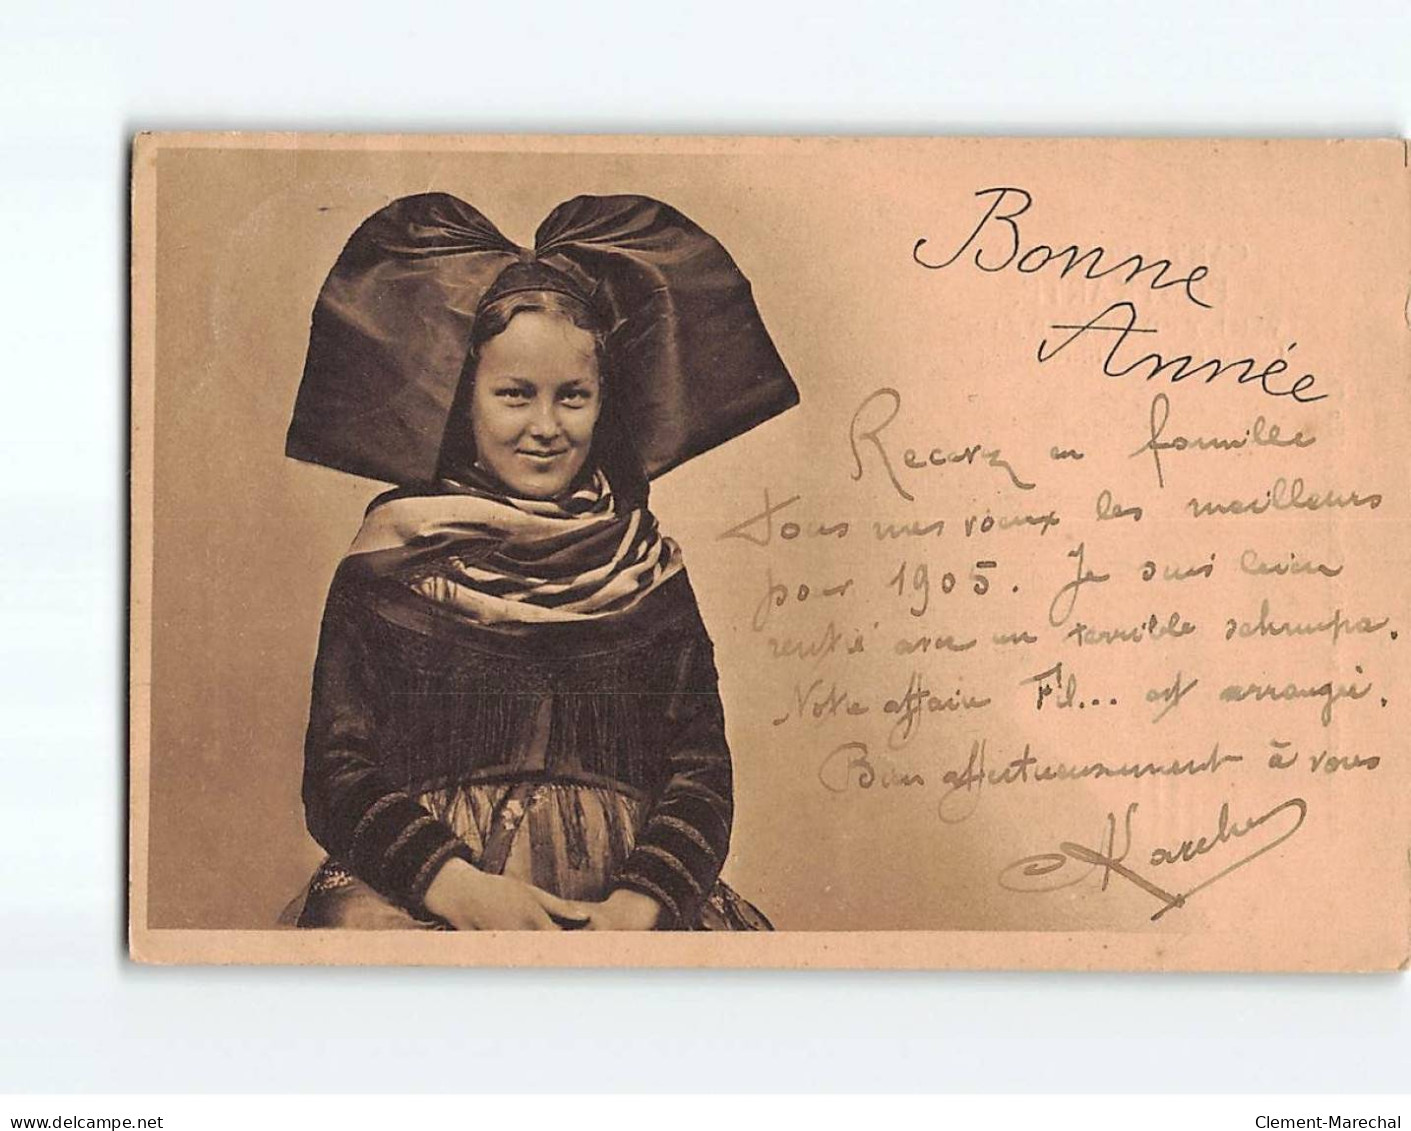 Bonne
Année
Recevez en famille
tous mes vœux les meilleurs
pour 1905. Je suis
rentré avec un terrible schnupa.
Notre affaire Fil... est arrangée.
Bien affectueusement à vous
Karcher
delcampe.net
Clement-Marechal